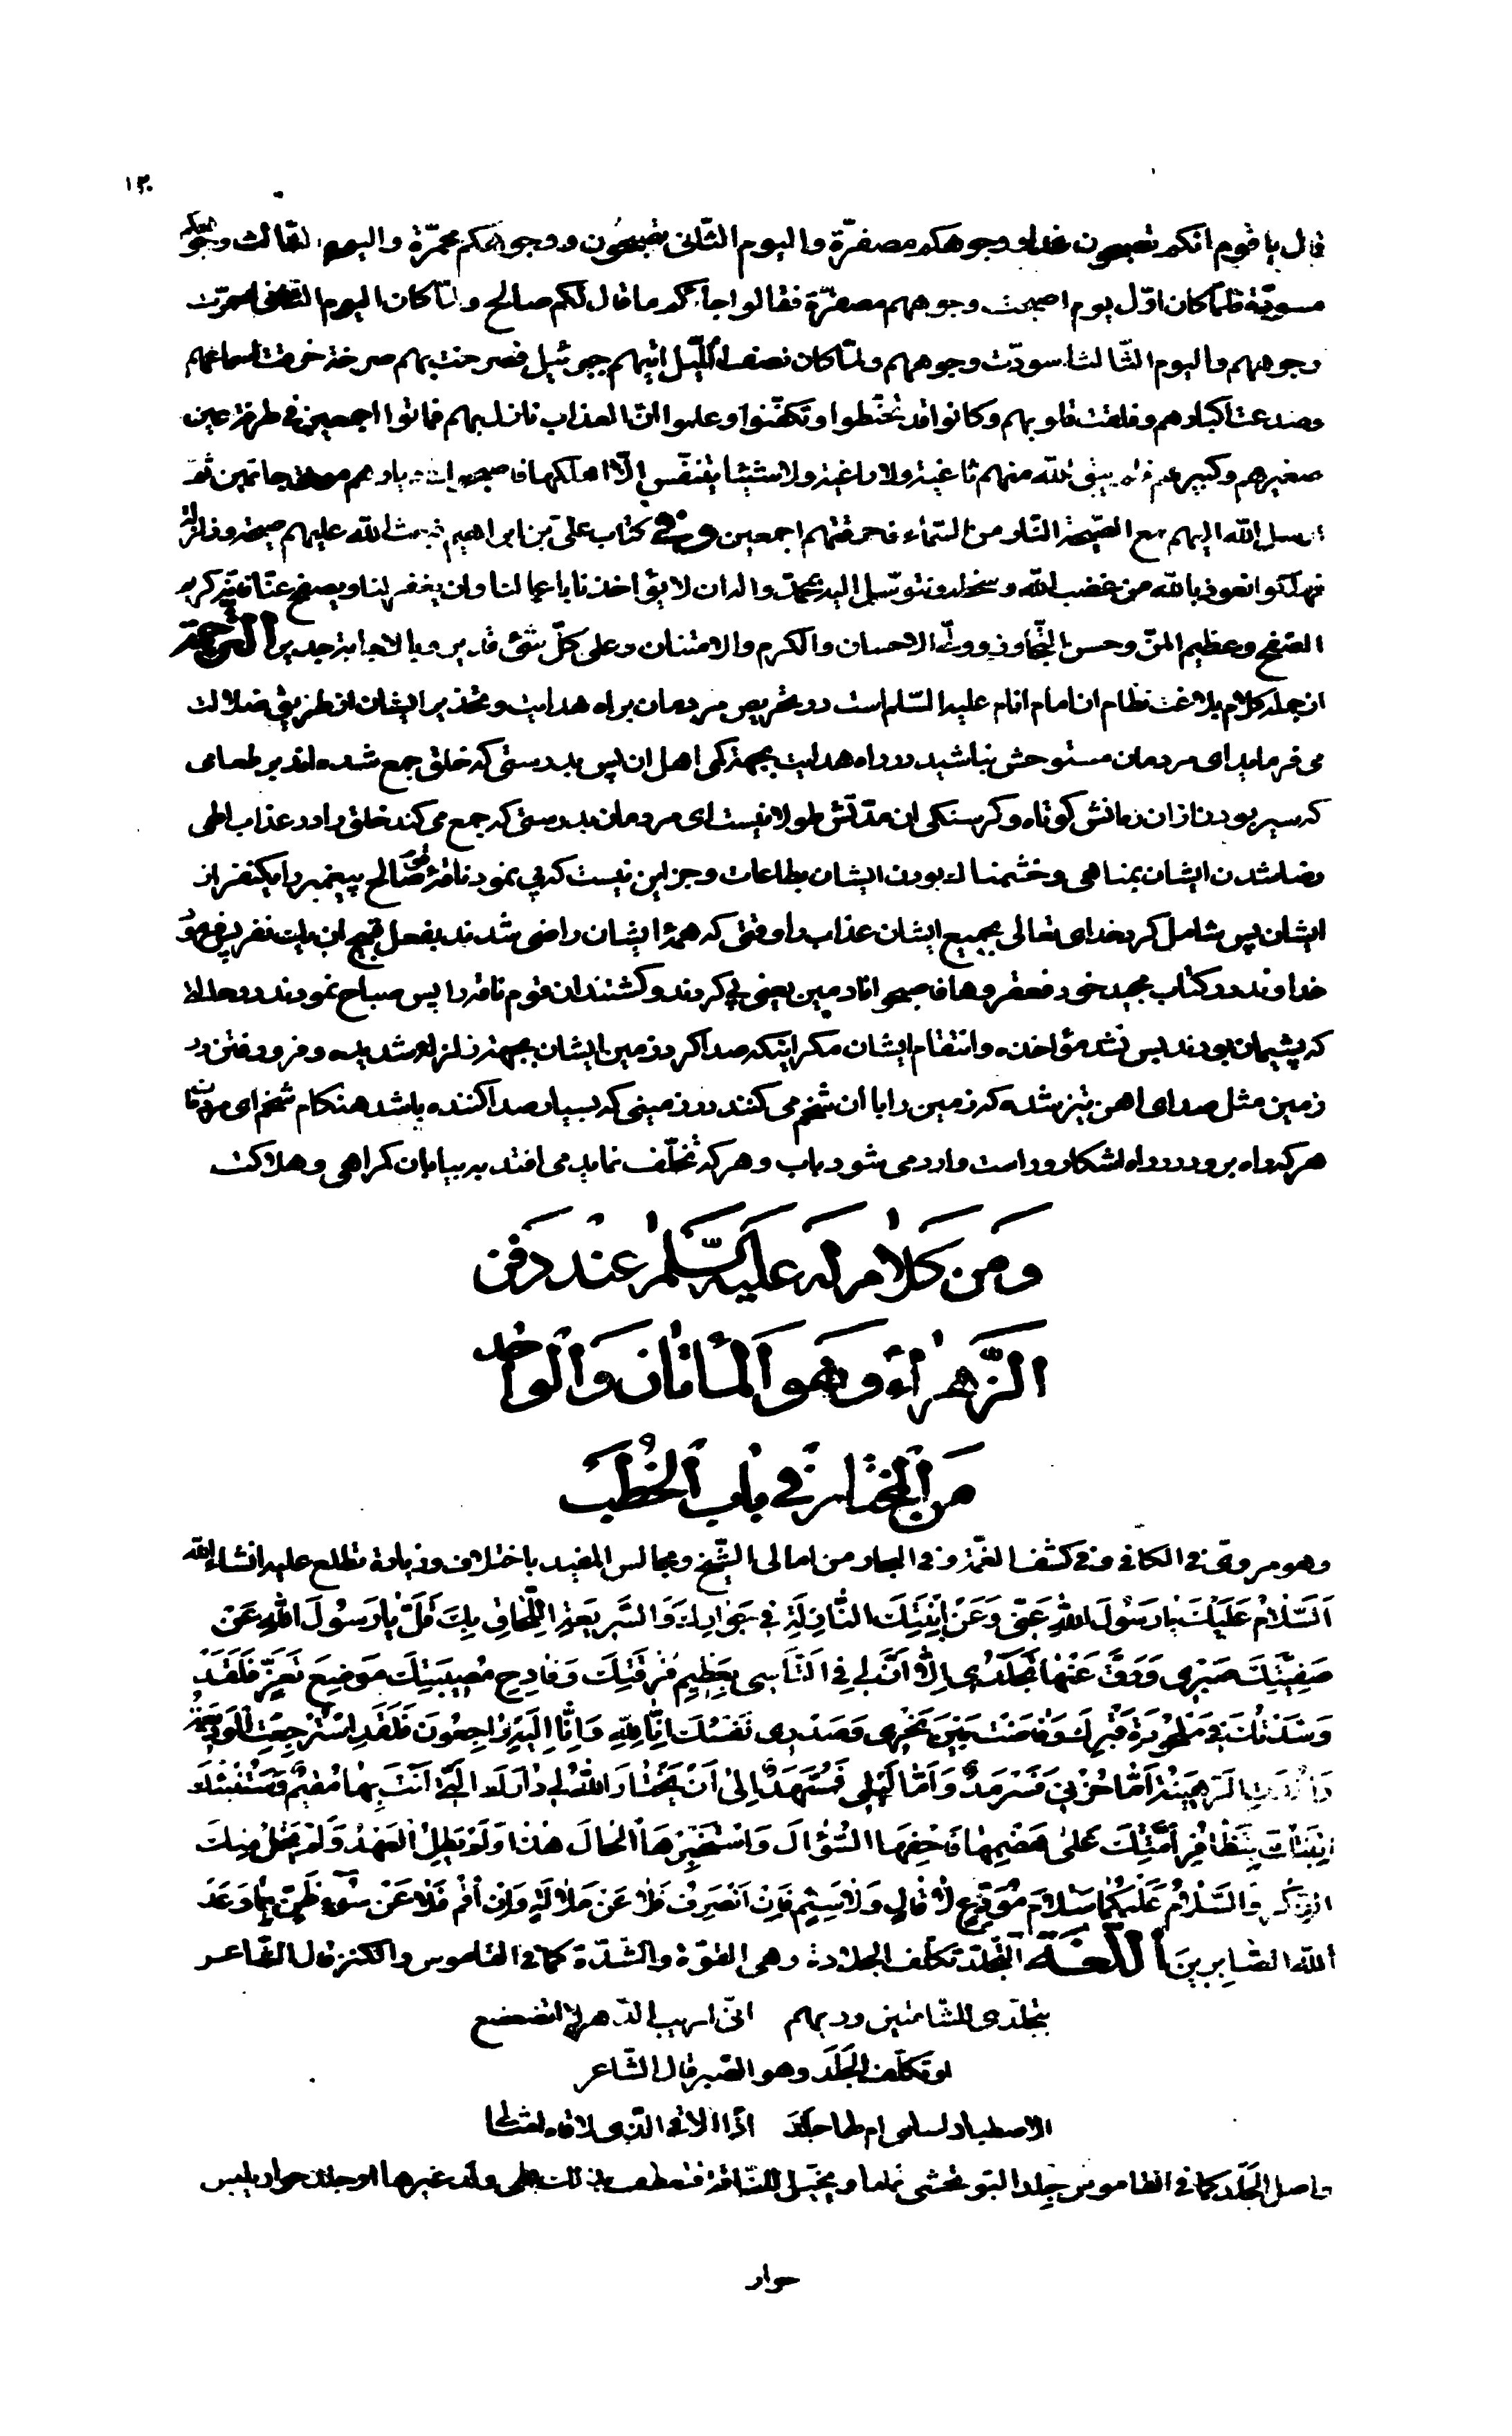 ١٣٠
قال يا قوم انكم تصبحون غدا و وجوهكم مصفرّة واليوم الثّانى تصبحون ووجوهكم محمرّة واليوم الثّالث وجوهكم
مسودّة فلمّا كان اوّل يوم اصبحت وجوههم مصفرّة فقالوا جاءكم ما قال لكم صالح ولمّا كان اليوم الثّانى احمرّت
وجوههم واليوم الثّالث اسودّت وجوههم ولمّا كان نصف اللّيل اتيهم جبرئيل فصرخت بهم صرخة خرقت اسماعهم
وصدعت اكبادهم وفلقت قلوبهم وكانوا قد تحنّطوا وتكفّنوا وعلموا انّ العذاب نازل بهم فماتوا اجمعين فى طرفة عين
صغيرهم وكبيرهم فلم يبق لله منهم ثاغية ولا راغية ولا شيئا يتنفّس الّا اهلكها فاصبحوا فى ديارهم موتى جاثمين ثمّ
ارسل الله اليهم مع الصّيحة النّار من السّماء فاحرقتهم اجمعين وفى كتاب علىّ بن ابراهيم فبعث الله عليهم صيحة وزلزلة
فهلكوا نعوذ بالله من غضب الله وسخطه ونتوسّل اليه بمحمّد واله ان لا يؤاخذنا باعمالنا وان يغفر لنا ويصفح عنّا فانّه كريم
الصّفح وعظيم المنّ وحسن التّجاوز وولىّ الاحسان والكرم والامتنان وعلى كلّ شىء قدير وبالاجابة جدير الترجمة
از جمله كلام بلاغت نظام ان امام انام عليه السّلم است در تحريص مردمان براه هدايت وتحذير ايشان از طريق ضلالت
مى فرمايد اى مردمان مستوحش نباشيد در راه هدايت بجهة كمى اهل ان پس بدرستى كه خلق جمع شده اند بر طعامى
كه سير بودن از ان زمانش كوتاه وكرسنكى ان مدّتش طولانيست اى مردمان بدرستى كه جمع مى كند خلق را در عذاب الهى
رضا شدن ايشان بمناهى وخشمناك بودن ايشان بطاعات وجز اين نيست كه پى نمود ناقهٔ صالح پيغمبر را يكنفر از
ايشان پس شامل كرد خداى تعالى بجميع ايشان عذاب را وقتى كه همهٔ ايشان راضى شدند بفعل قبيح ان يك نفر پس فرمود
خداوند در كتاب مجيد خود فعقروها فاصبحوا نادمين يعنى پى كردند وكشتند ان قوم ناقه را پس صباح نمودند در حالتى
كه پشيمان بودند پس نشد مؤاخذه وانتقام ايشان مكر اينكه صدا كرد زمين ايشان بجهة زلزله شديده وفرو رفتن در
زمين مثل صداى اهن تيز شده كه زمين را با ان شخم مى كنند در زمينى كه بسيار صدا كننده باشد هنكام شخم اى مردمان
هر كه راه برود در راه اشكار وراست وارد مى شود باب وهر كه تخلّف نمايد مى افتد به بيابان كمراهى وهلاكت
ومن كلام له عليه السّلم عند دفن
الزّهراء وهو المأتان والواحد
من المختار فى باب الخطب
وهو مروىّ فى الكافى وفى كشف الغمّة وفى البحار من امالى الشّيخ ومجالس المفيد باختلاف وزيادة تطلع عليه انشاء الله
اَلسَّلامُ عَلَيْكَ يا رَسُولَ اللهِ عَنّى وَعَنْ ابْنَتِكَ النّازِلَةِ فى جِوارِكَ وَالسَّريعَةِ اللِّحاقِ بِكَ قَلَّ يا رَسُولَ اللهِ عَنْ
صَفِيَّتِكَ صَبْرى وَرَقَّ عَنْها تَجَلُّدى اِلّا اَنَّ لى فِى التَّأَسّى بِعَظيمِ فُرْقَتِكَ وَفادِحِ مُصيبَتِكَ مَوْضِعَ تَعَزٍّ فَلَقَدْ
وَسَّدْتُكَ فى مَلْحُودَةِ قَبْرِكَ وَفاضَتْ بَيْنَ نَحْرى وَصَدْرى نَفْسُكَ اِنّا لِلّهِ وَاِنّا اِلَيْهِ راجِعُونَ فَلَقَدِ اسْتُرْجِعَتِ الْوَديعَةُ
وَاُخِذَتِ الرَّهينَةُ اَمّا حُزْنى فَسَرْمَدٌ وَاَمّا لَيْلى فَمُسَهَّدٌ اِلى اَنْ يَخْتارَ اللهُ لى دارَكَ الَّتى اَنْتَ بِها مُقيمٌ وَسَتُنَبِّئُكَ
ابْنَتُكَ بِتَظافُرِ اُمَّتِكَ عَلى هَضْمِها فَاَحْفِهَا السُّؤالَ وَاسْتَخْبِرْهَا الْحالَ هذا وَلَمْ يَطُلِ الْعَهْدُ وَلَمْ يَخْلُ مِنْكَ
الذِّكْرُ وَالسَّلامُ عَلَيْكُما سَلامَ مُوَدِّعٍ لا قالٍ وَلا سَئِمٍ فَاِنْ اَنْصَرِفْ فَلا عَنْ مَلالَةٍ وَاِنْ اُقِمْ فَلا عَنْ سُوءِ ظَنٍّ بِما وَعَدَ
اللهُ الصّابِرينَ اللّغة التّجلّد تكلّف الجلادة وهى القوّة والشّدّة كما فى القاموس والكنز قال الشّاعر
بتجلّدى للشّامتين وربهم انّى لريب الدّهر لا اتضعضع
او تكلّف الجَلَد وهو الصّبر قال الشّاعر
الا اصطبار لسلمى ام لها جلد اذا الاقى الّذى لاقاه امثالى
واصل الجَلَد كما فى القاموس جلد البوّ يحشى ثماما ويخيّل للنّاقة فتعطف بذلك على ولد غيرها او جلد حوار يلبس
حوار